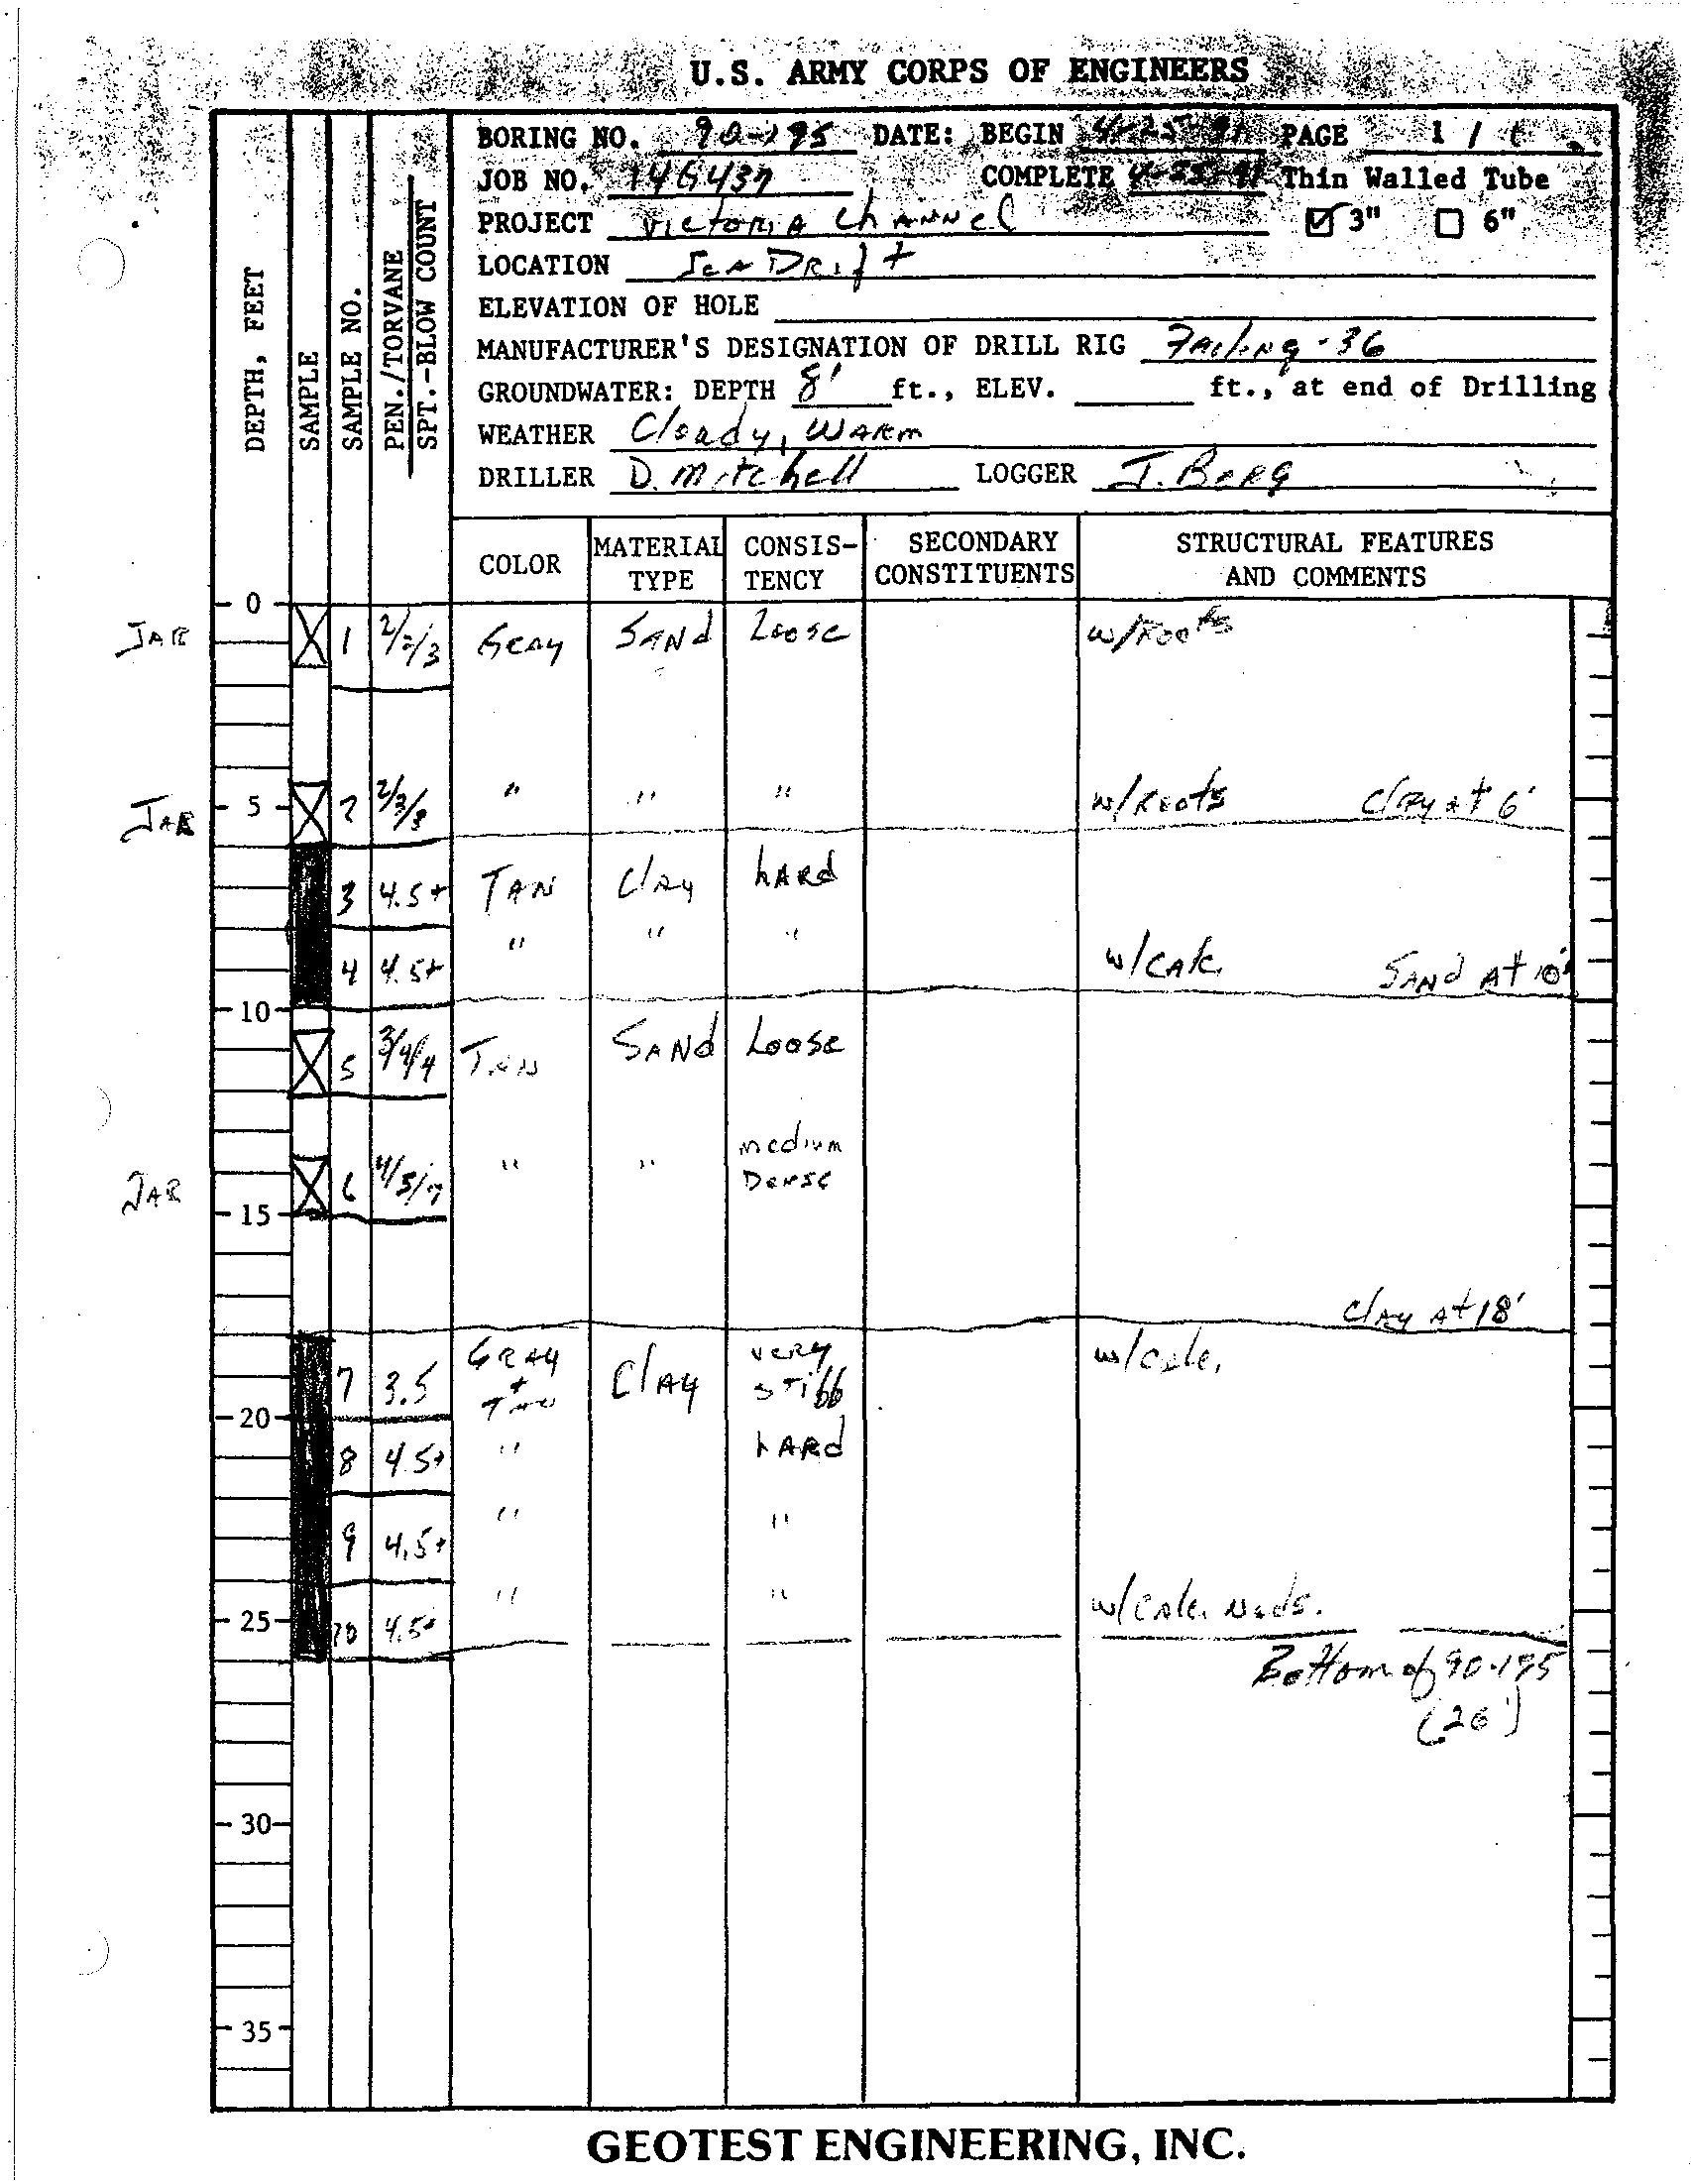 U.S. ARMY CORPS OF ENGINEERS
BORING NO. 90-195 DATE: BEGIN 4-25-91 PAGE 1 / 1
JOB NO. 14G437 COMPLETE 4-25-91 Thin Walled Tube
PROJECT Victoria Channel ☑ 3" ☐ 6"
LOCATION SeaDrift
ELEVATION OF HOLE
MANUFACTURER'S DESIGNATION OF DRILL RIG Failing-36
GROUNDWATER: DEPTH 8' ft., ELEV. ft., at end of Drilling
WEATHER Cloudy, WARM
DRILLER D. Mitchell LOGGER J. Berg
DEPTH, FEET
SAMPLE
SAMPLE NO.
PEN./TORVANE
SPT.-BLOW COUNT
COLOR MATERIAL TYPE CONSIS-TENCY SECONDARY CONSTITUENTS STRUCTURAL FEATURES AND COMMENTS
0
JAR 1 2/2/3 Gray SANd Loose w/Roots
JAR 5 2 2/3/3 " " " w/Roots Clay at 6'
3 4.5+ TAN Clay hARd
4 4.5+ " " " w/CAlc. SANd At 10'
10
5 3/4/4 TAN SANd Loose
JAR 6 4/5/7 " " medium Dense
15
Clay At 18'
7 3.5 GRAY + TAN ClAy very stiff w/calc.
20
8 4.5+ " hARd
9 4.5+ " "
25 10 4.5+ " " w/CAlc. Nods.
Bottom of 90-195
(26')
30
35
GEOTEST ENGINEERING, INC.